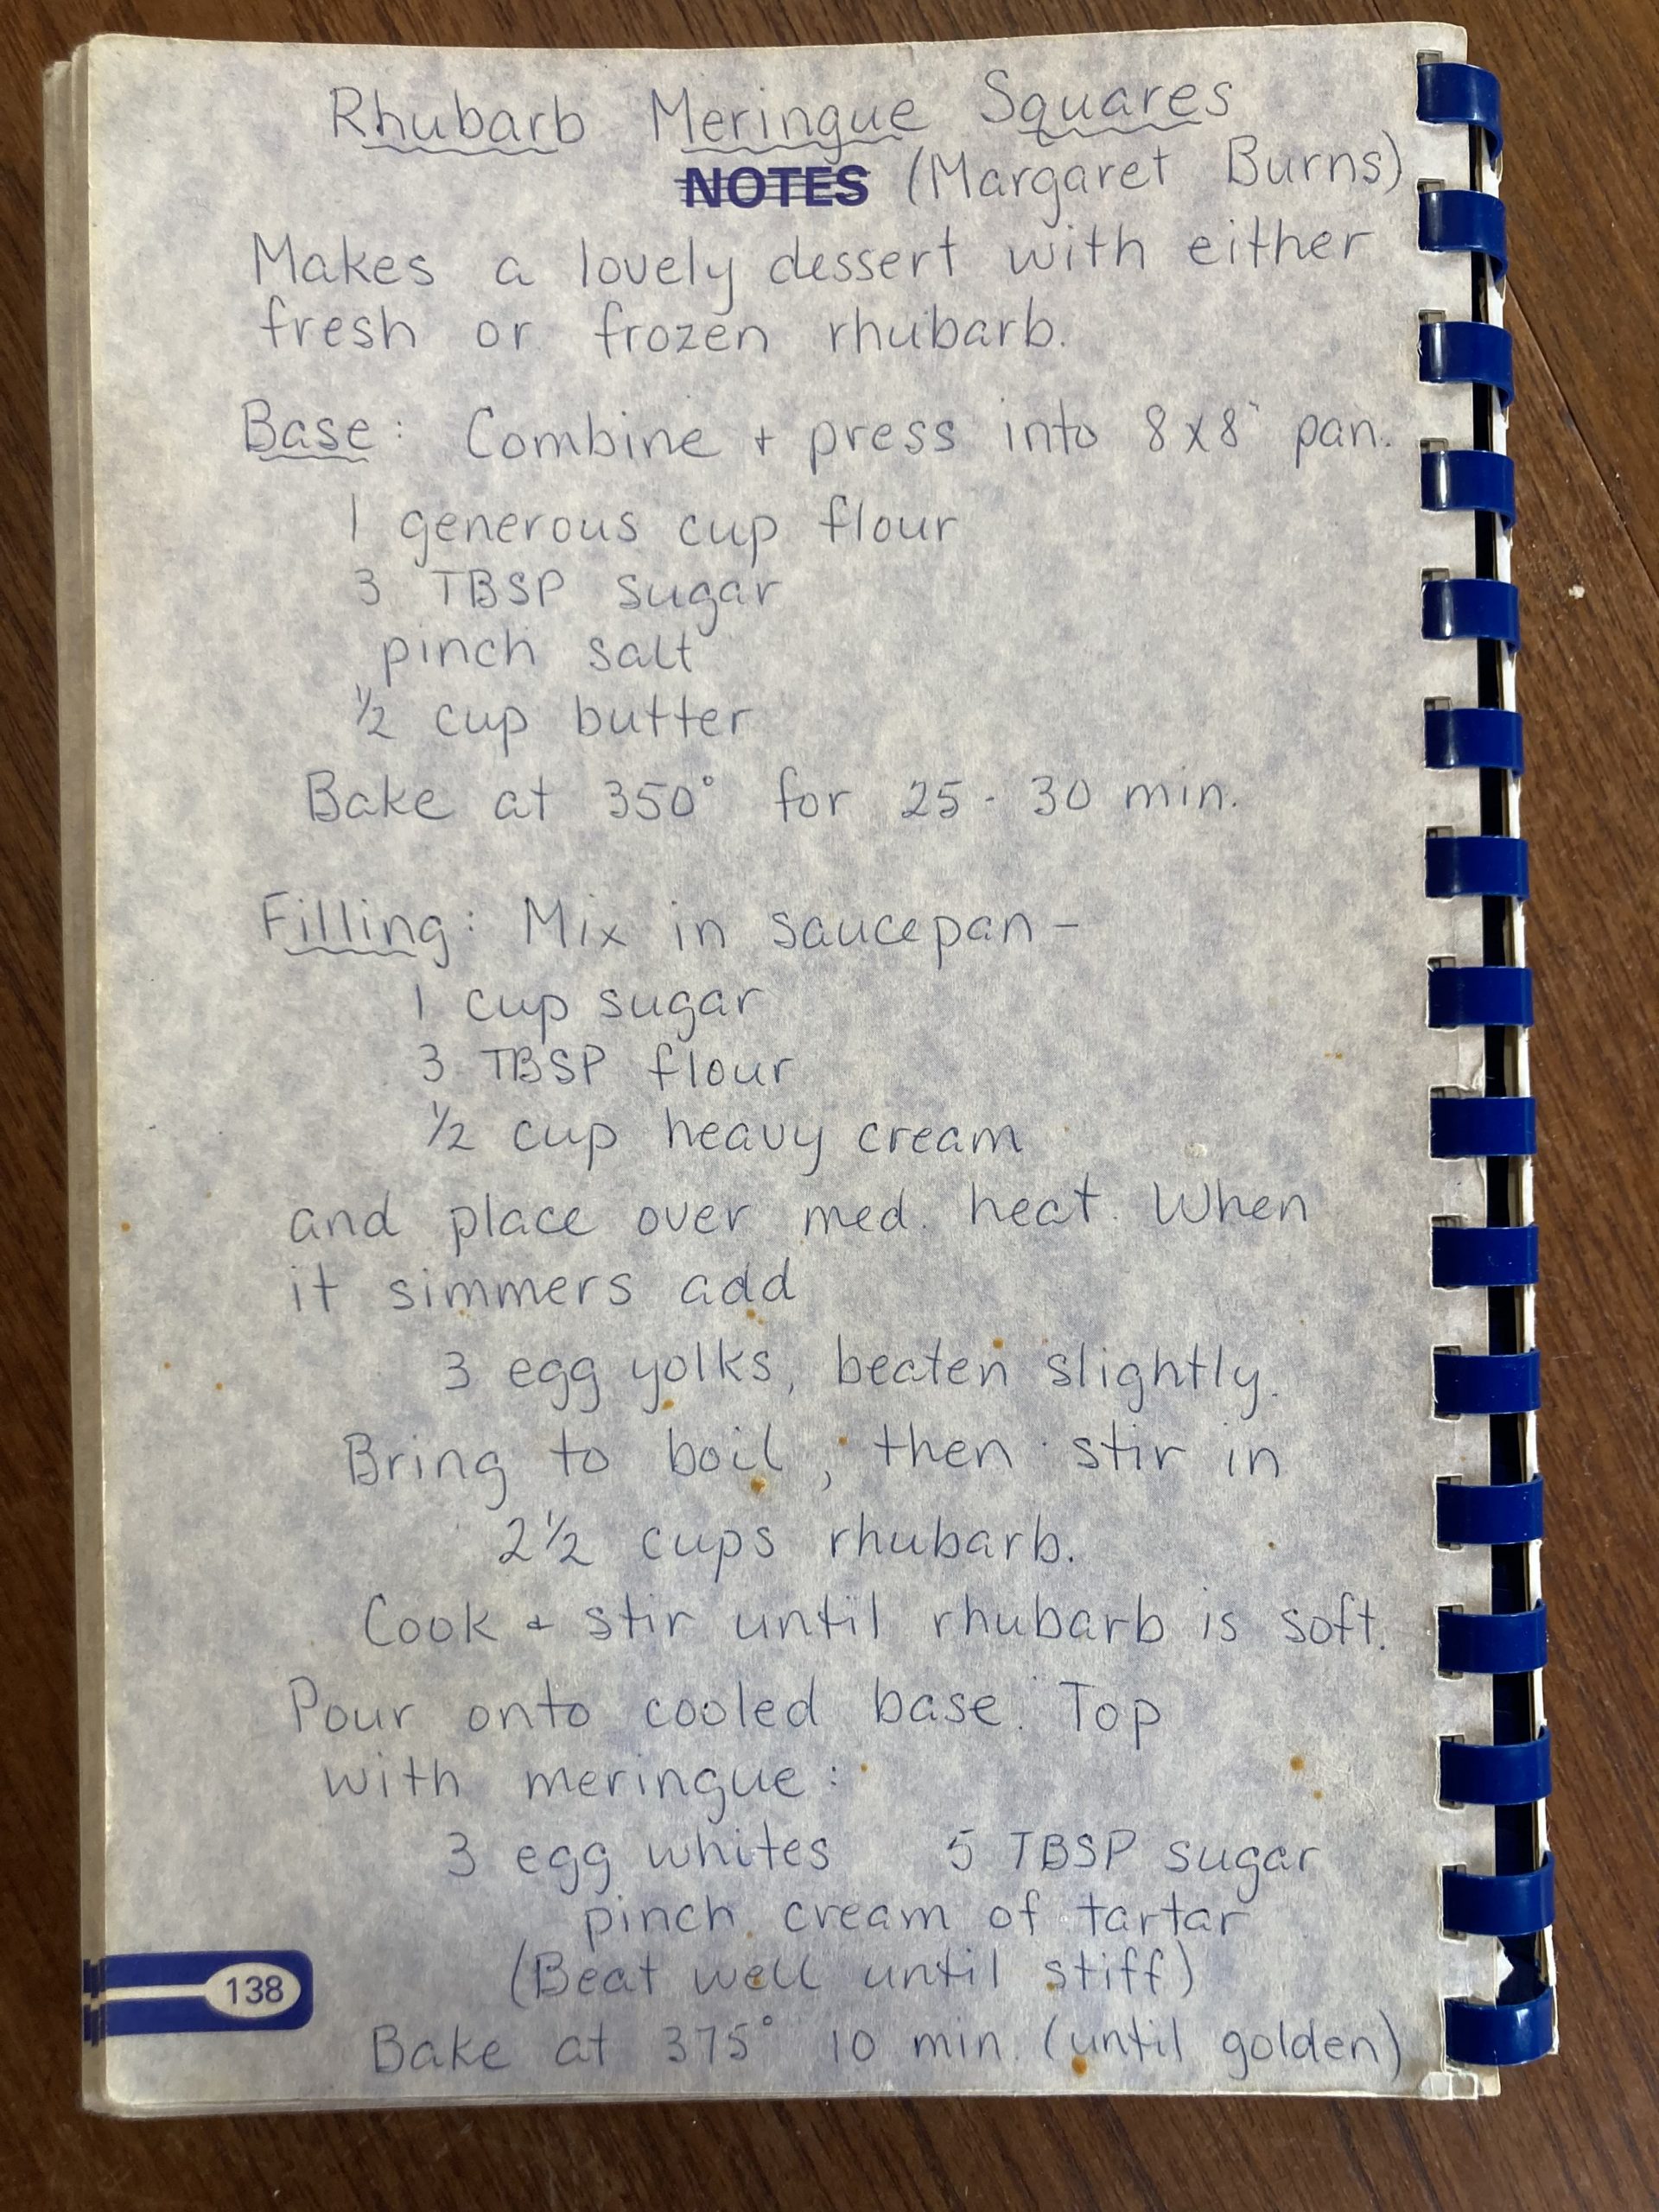 Rhubarb Meringue Squares
NOTES (Margaret Burns)
Makes a lovely dessert with either
fresh or frozen rhubarb.
Base: Combine + press into 8x8" pan.
1 generous cup flour
3 TBSP sugar
pinch salt
½ cup butter
Bake at 350° for 25 - 30 min.
Filling: Mix in saucepan -
1 cup sugar
3 TBSP flour
½ cup heavy cream
and place over med. heat. When
it simmers add
3 egg yolks, beaten slightly.
Bring to boil, then stir in
2½ cups rhubarb.
Cook + stir until rhubarb is soft.
Pour onto cooled base. Top
with meringue:
3 egg whites 5 TBSP sugar
pinch cream of tartar
(Beat well until stiff)
138
Bake at 375° 10 min. (until golden)